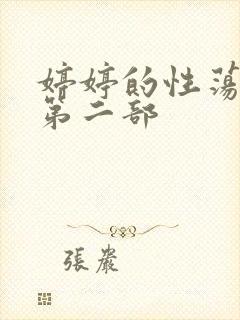 婷婷的性蕩
第二部
張巖